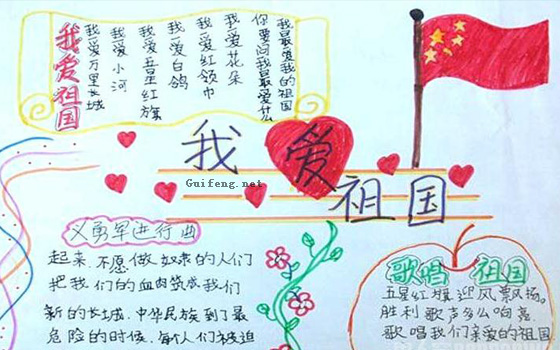 我爱祖国
我爱万里长城
我爱小河
我爱五星红旗
我爱白鸽
我爱红领巾
我爱花朵
你要问我最爱什么
我最爱我的祖国
我爱祖国
Guifeng.net
义勇军进行曲
起来.不愿做奴隶的人们
把我们的血肉筑成我们
新的长城.中华民族到了最
危险的时候.每个人们被迫
歌唱祖国
五星红旗迎风飘扬。
胜利歌声多么响亮
歌唱我们亲爱的祖国